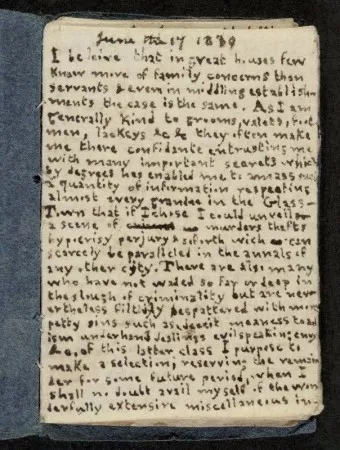 June the 17 1830
I beleive that in great houses few
know more of family concerns than
servants & even in middling establish-
ments the case is the same. As I am
generally kind to grooms, valets, foot
men, lackeys &c &c they often make
me there confidante entrusting me
with many important secrets which
by degrees has enabled me to amass such
a quantity of information respecting
almost every grandee in the Glass-
Town that if I chose I could unveil
a scene of murders thefts
hypocrisy perjury & so forth wich can
scarcely be paralleled in the annals of
any other city. There are also many
who have not waded so far or deep in
the slough of criminality but are nev-
ertheless filthily bespattered with more
petty sins such as deceit meaness toad
ism underhand dealings evil speaking envy
&c. of this latter class I purpose to
make a selection, reserving the remain
der for some future period, when I
shall no doubt avail myself of the won
derfully extensive miscellaneous in-